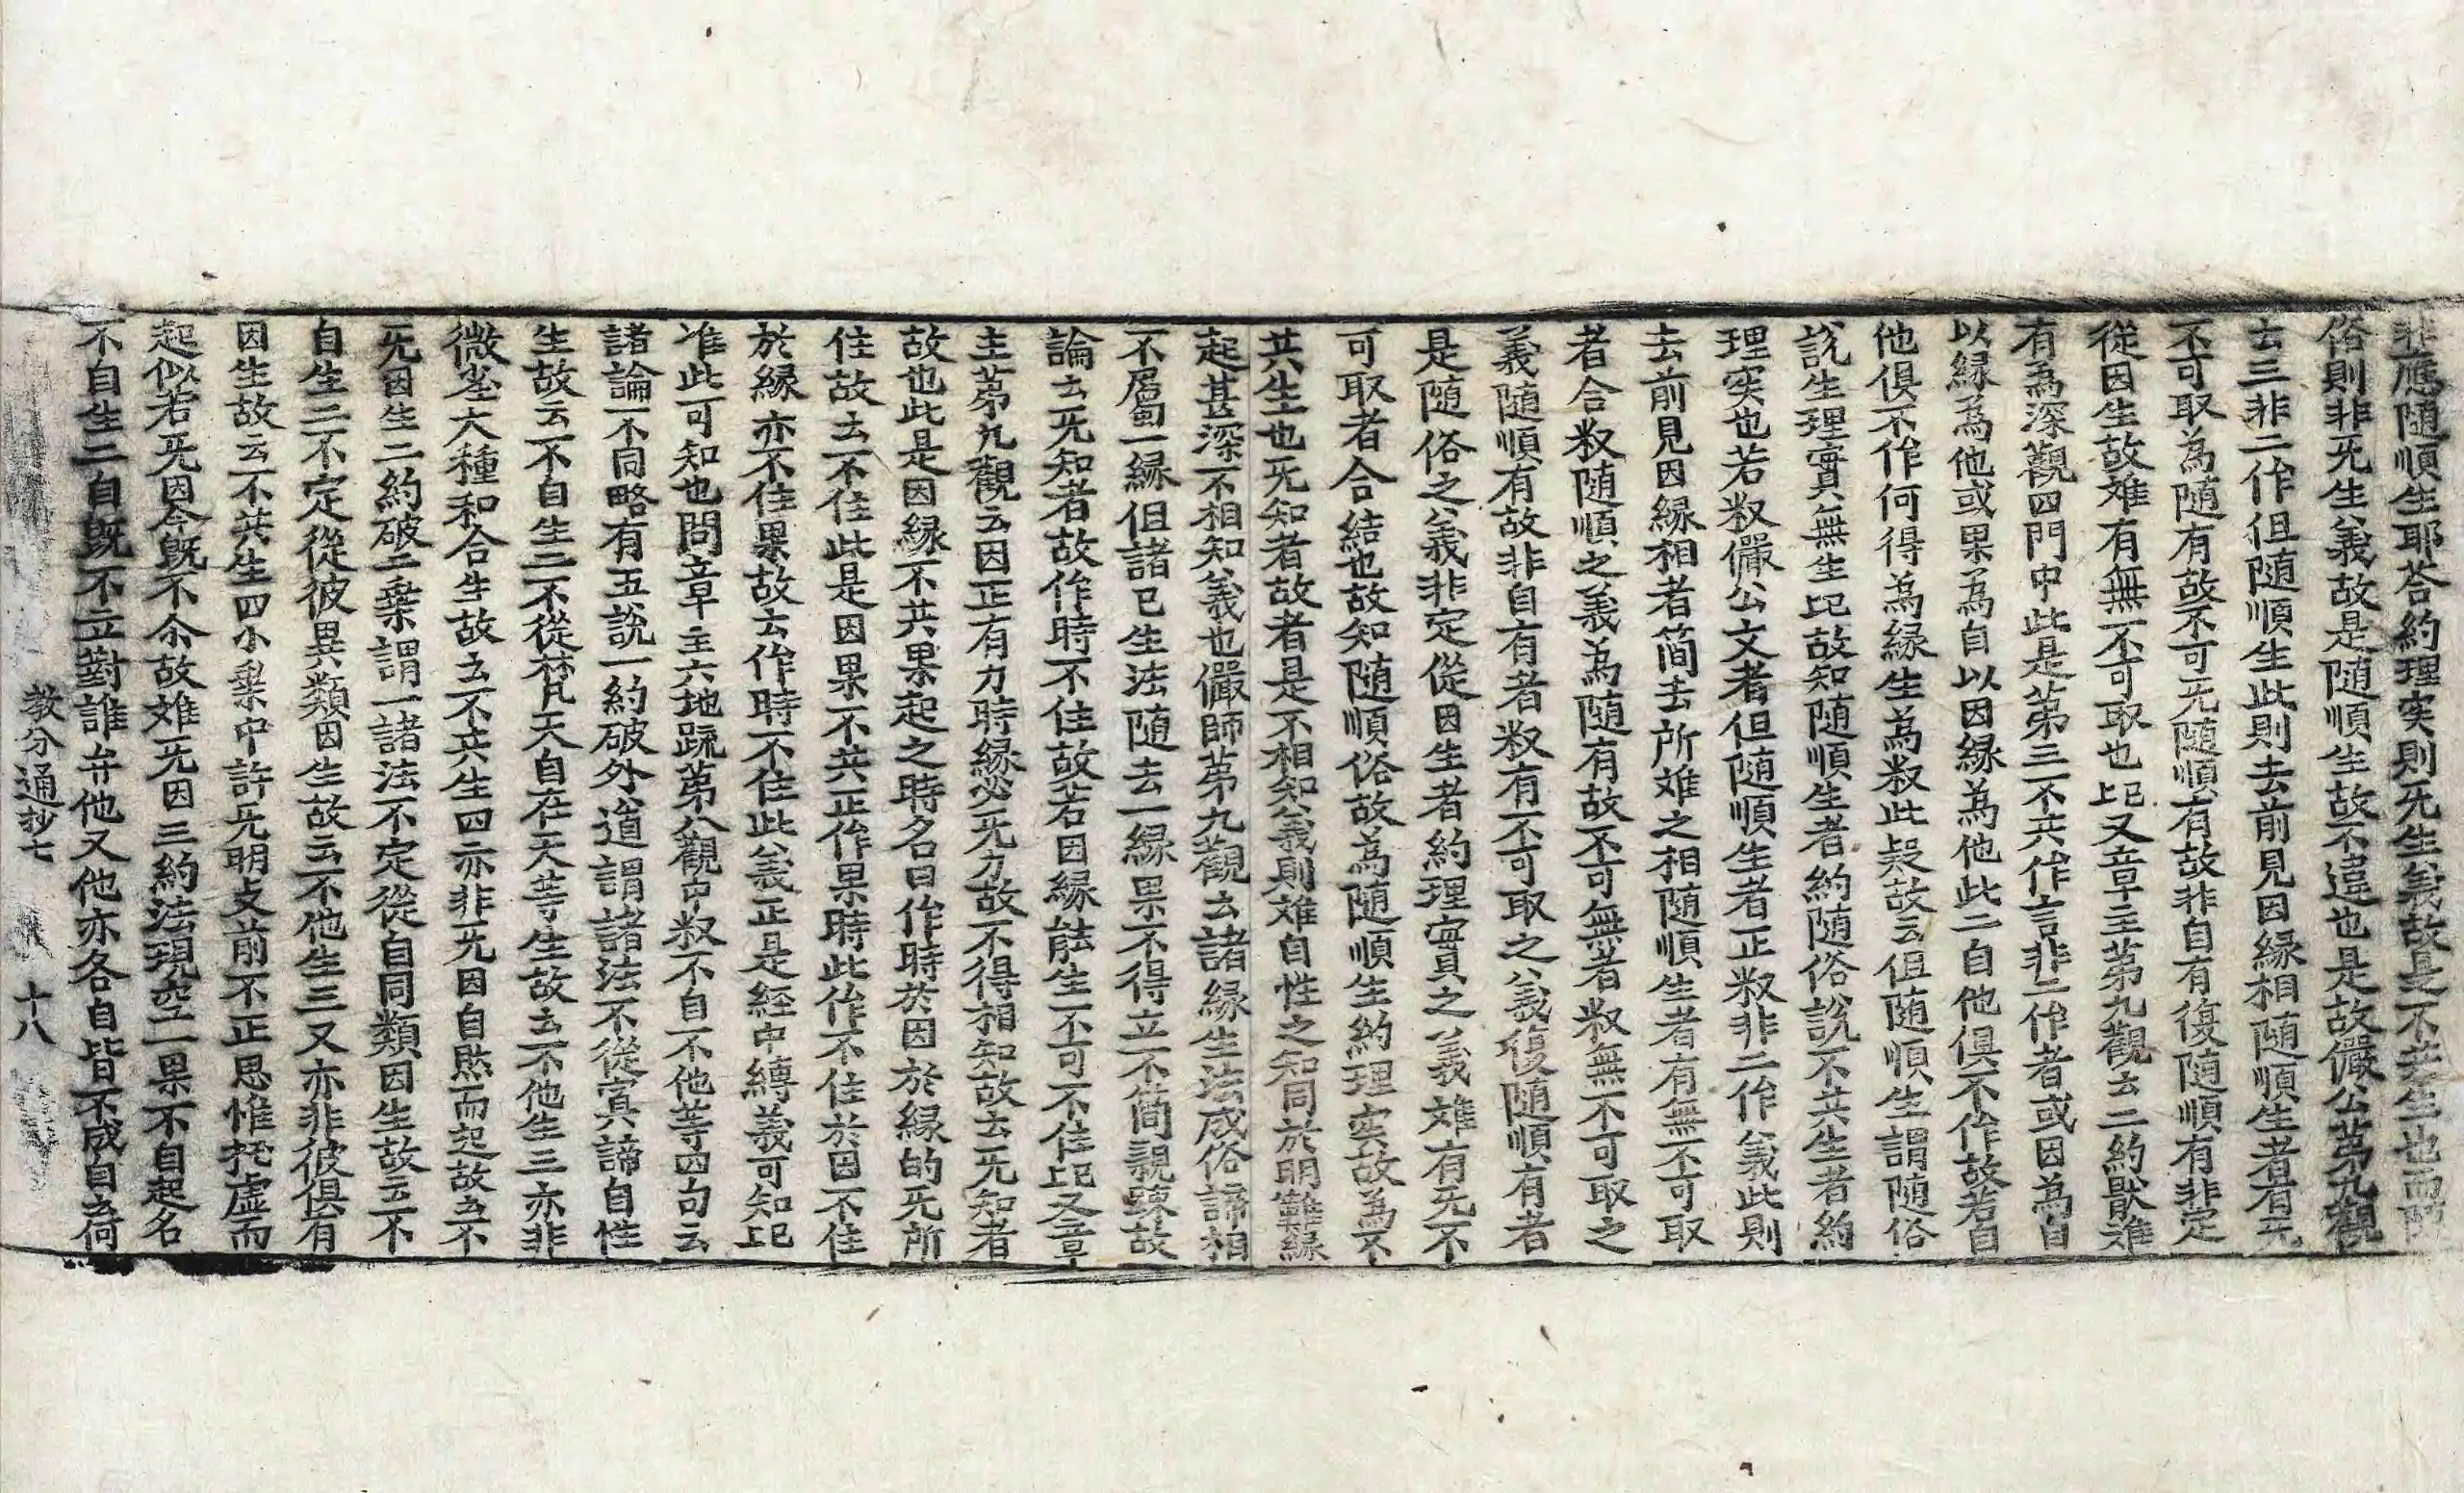 非應随順生耶荅約理实則旡生義故是不共生也而随
俗則非旡生義故是随順生故不違也是故儼公第九觀
云三非二作但随順生此則云前見因緣相随順生者有旡
不可取為随有故不可旡随順有故非自有復随順有非定
從因生故难有無不可取也上已又章主第九觀云二約猒难
有為深觀四門中此是第三不共作言非二作者或因為自
以縁為他或果為自以因縁為他此二自他俱不作故若自
他俱不作何得為縁生為㕘此㝵故云但随順生謂随俗
說生理實無生上已故知随順生者約随俗說不共生者約
理実也若㕘儼公文者但随順生者正㕘非二作義此則
云前見因縁相者簡去所难之相随順生者有無不可取
者合㕘随順之義為随有故不可無者㕘無不可取之
義随順有故非自有者㕘有不可取之義復随順有者
是随俗之義非定從因生者約理實之義难有旡不
可取者合結也故知随順俗故為随順生約理实故為不
共生也旡知者故者是不相知義則难自性之知同於明難緣
起甚深不相知義也儼師第九觀云諸縁生法成俗諦相
不屬一縁但諸已生法随去一縁果不得立不簡親踈故
論云旡知者故作時不住故若因縁能生不可不住上已又章
主第九觀云因正有力時縁必旡力故不得相知故云旡知者
故也此是因縁不共果起之時名曰作時於因於縁的旡所
住故云不住此是因果不共正作果時此作不住於因不住
於縁亦不住果故云作時不住此義正是經中縛義可知上已
准此可知也問章主六地䟽第八觀中㕘不自不他等四句云
諸論不同略有五說一約破外道謂諸法不從㝠諦自性
生故云不自生二不從梵天自在天等生故云不他生三亦非
微尘大種和合生故云不共生四亦非旡因自然而起故云不
旡因生二約破二乗謂一諸法不定從自同類因生故云不
自生二不定從彼異類因生故云不他生三又亦非彼俱有
因生故云不共生四小乗中許旡明支前不正思惟托虚而
起似若旡因今旣不尒故难旡因三約法現空一果不自起名
不自生二自旣不立對誰弁他又他亦各自皆不成自故何
教分通抄七　十八